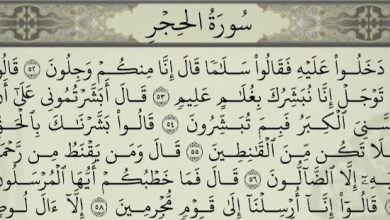 سُورَةُ الحِجْرِ
دَخَلُوا۟ عَلَيْهِ فَقَالُوا۟ سَلَٰمًا قَالَ إِنَّا مِنكُمْ وَجِلُونَ ٥٢ قَالُو
تَوْجَلْ إِنَّا نُبَشِّرُكَ بِغُلَٰمٍ عَلِيمٍ ٥٣ قَالَ أَبَشَّرْتُمُونِى عَلَىٰٓ أَن
ـنِىَ ٱلْكِبَرُ فَبِمَ تُبَشِّرُونَ ٥٤ قَالُوا۟ بَشَّرْنَٰكَ بِٱلْحَقِّ
لَا تَكُن مِّنَ ٱلْقَٰنِطِينَ ٥٥ قَالَ وَمَن يَقْنَطُ مِن رَّحْمَ
ـهِۦٓ إِلَّا ٱلضَّآلُّونَ ٥٦ قَالَ فَمَا خَطْبُكُمْ أَيُّهَا ٱلْمُرْسَلُو
قَالُوٓا۟ إِنَّآ أُرْسِلْنَآ إِلَىٰ قَوْمٍ مُّجْرِمِينَ ٥٨ إِلَّآ ءَالَ لُوطٍ